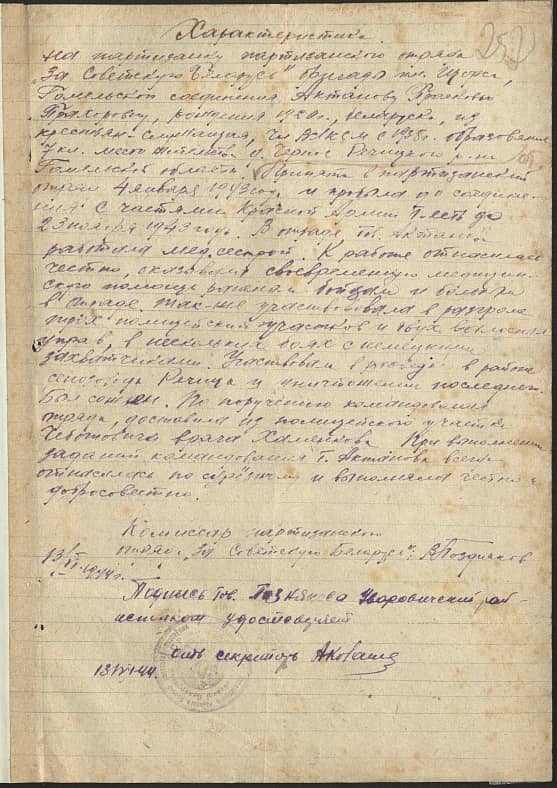 Характеристика.
252
на партизанку партизанского отряда
"За Советскую Беларусь" бригады им.
Гомельской соединения Актанову
рождения 1920 г., беларуска, из
крестьян чл ВЛКСМ с 1938 г. образование
7 кл. место жительства д. Речицкого р-на
Гомельской области. Принята в партизанский
отряд 4 января 1943 года и пробыла до соедине-
ния с частями Красной Армии т-есть до
23 ноября 1943 года. В отряде тов. Актанова
работала медсестрой. К работе относилась
честно, оказывала своевременную медицин-
ского помощь раненым бойцам и больным
в отряде. Так-же участвовала в разгроме
трёх полицейских участков и двух волостных
управ, в нескольких боях с немецкими
захватчиками. Участвовала в разведке в районе
Речица и уничтожении последнего.
По поручению командования
отряда, доставила из полицейского участка
врача При выполнении
заданий командования т. Актанова всегда
относилась по серьёзному и выполняла честно и
добросовестно.
Комиссар партизанского
отряда "За Советскую Беларусь" В Поздняков
1944г.
Подпись тов. Позднякова Уваровичский рай-
исполком удостоверяет
секретарь
13/VI-44.